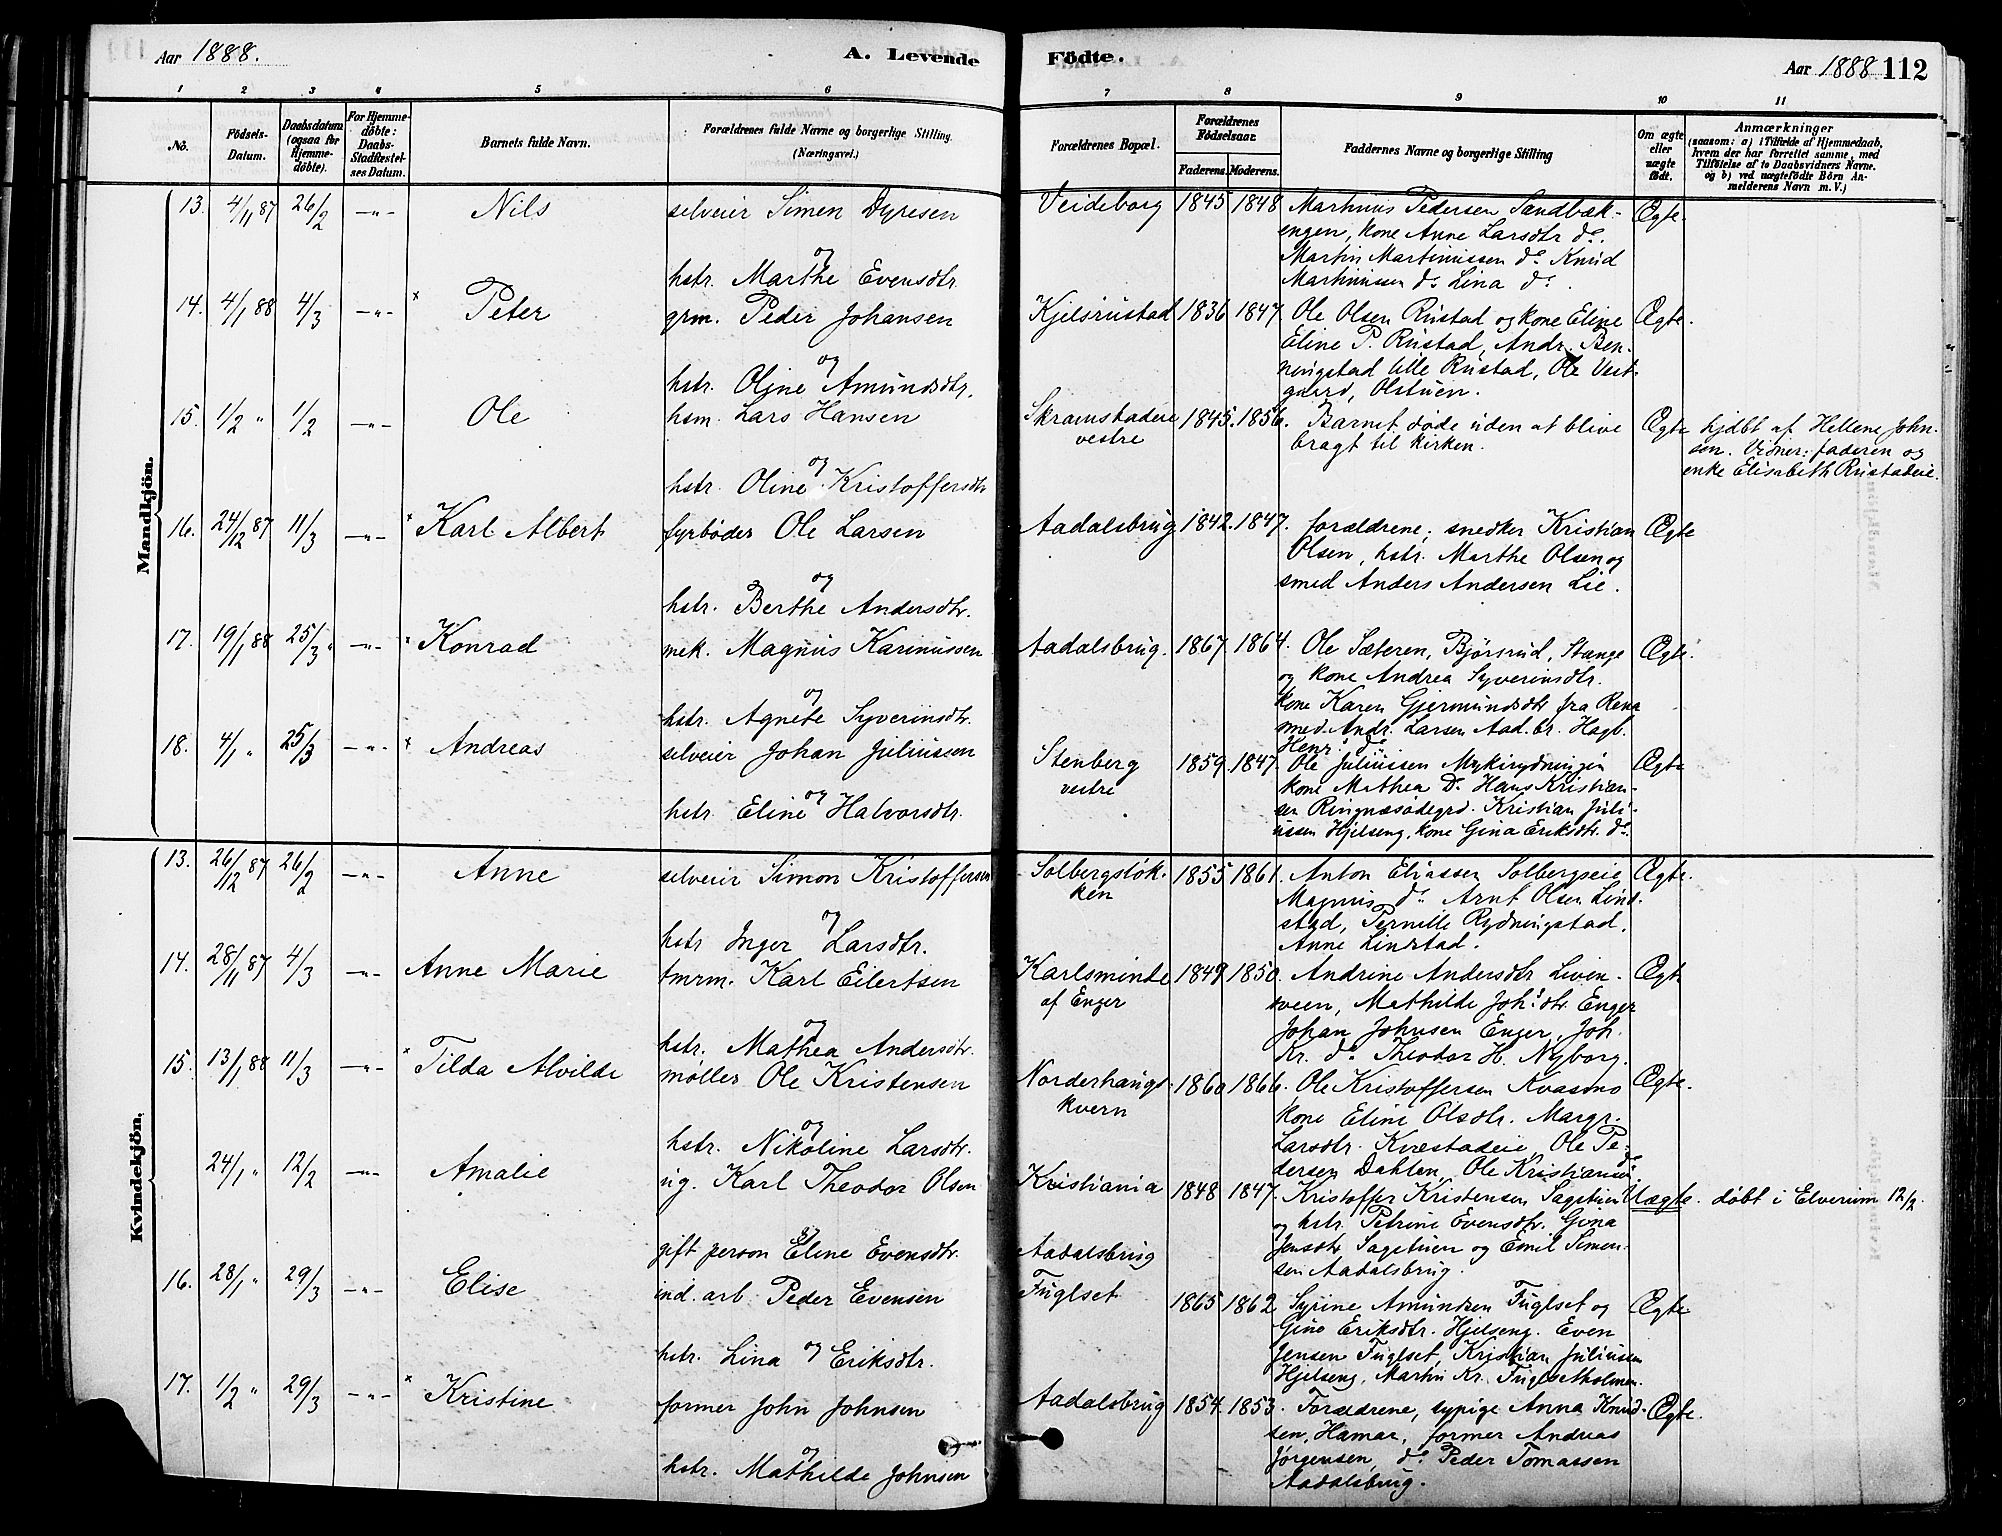 Aar 1888.
A. Levende
Födte.
Aar 1888 112
1 2 3 4 5 6 7 8 9 10 11
No.
Födsels-
Datum.
Daabsdatum
(ogsaa for
Hjemme-
döbte).
For Hjemme-
döbte:
Daabs-
Stadfestel-
ses Datum.
Barnets fulde Navn.
Forældrenes fulde Navne og borgerlige Stilling
(Næringsvei.)
Forældrenes Bopæl.
Forældrenes
Födselsaar.
Faderens. Moderens.
Faddernes Navne og borgerlige Stilling
Om ægte
eller
uægte
födt.
Anmærkninger
(saasom: a) i Tilfælde af Hjemmedaab,
hvem der har forrettet samme, med
Tilföielse af to Daabsvidners Navne.
og b) ved uægtefödte Börn An-
melderens Navn m. V.)
Mandkjön.
13. 4/11 87 26/2 -"- Nils selveier Simen Dyresen Veideborg 1845 1848 Marthinus Pedersen Sandbæk- Ægte.
engen, kone Anne Larsdtr do.
og Martin Martinussen do Knud
hstr. Marthe Evensdtr. Martinusen do Lina do.
14. 4/1 88 4/3 -"- x Peter grm. Peder Johansen Kjelsrustad 1836 1847. Ole Olsen Rustad og kone Eline Ægte.
Eline P. Rustad, Andr. Ben-
og ningstad lille Rustad, Ole Vest-
hstr. Oline Amundsdtr. gaard, Olstuen.
15. 1/2 " 1/2 -"- Ole hsm. Lars Hansen Skramstadeie 1845. 1856. Barnet døde uden at blive Ægte hjdbt af Hellene John-
vestre bragt til kirken. sen. Vidner: faderen og
og enke Elisabeth Rustadeie.
hstr. Oline Kristoffersdtr
16. 24/12 87 11/3 -"- x Karl Albert fyrbøder Ole Larsen Aadalsbrug 1842. 1847. forældrene, snedker Kristian Ægte
Olsen, hstr. Marthe Olsen og
og smed Anders Andersen Lie.
hstr. Berthe Andersdtr.
17. 19/1 88 25/3 " -"- Konrad mek. Magnus Karinussen Aadalsbrug. 1867. 1864. Ole Sæteren, Bjørsrud, Stange Ægte.
og kone Andrea Syverinsdtr.
og kone Karen Gjermundsdtr fra Rena
hstr. Agnete Syverinsdtr. smed Andr. Larsen Aad.br. Hagb.
Henr. do
18. 4/1 " 25/3 -"- x Andreas selveier Johan Juliussen Stenberg 1859. 1847. Ole Juliussen Mykirydningen Ægte
vestre kone Mathea Do. Hans Kristian-
og sen Ringnæsødegrd. Kristian Juli-
hstr. Eline Halvorsdtr. ussen Hjelseng, kone Gina Eriksdtr. do.
Kvindekjön.
13. 26/12 87 26/2 -"- Anne selveier Simon Kristoffersen Solbergsløk- 1855 1861. Anton Eliassen Solbergseie Ægte.
ken Magnus do. Arnt Olsen Lind-
og stad, Pernille Rydningstad,
hstr Inger Larsdtr. Anne Linstad.
14. 28/11 87 4/3 -"- Anne Marie tmrm. Karl Eilertsen Karlsminde 1849 1850. Andrine Andersdtr Liven- Ægte
af Enger sveen, Mathilde Joh.s dtr Enger
og Johan Johnsen Enger, Joh.
hstr. Mathea Andersdtr. Kr. do Theodor H. Nyborg.
15. 13/1 88 11/3 -"- x Tilda Alvilde møller Ole Kristensen Norderhaugs- 1860 1866. Ole Kristoffersen Kvasmo Ægte.
kvern kone Eline Olsdtr. Margr.
og Larsdtr. Kvæstadeie, Ole Pe-
hstr. Nikoline Larsdtr. dersen Dahlen, Ole Kristiansen do
24/1 " 12/2 -"- Amalie ug. Karl Theodor Olsen Kristiania 1848 1847. Kristoffer Kristensen Sagstuen Uægte. døbt i Elverum 12/2.
og hstr. Petrine Evensdtr. Gina
og Jensdtr Sagstuen og Emil Simen-
gift person Eline Evensdtr. Aadalsbrug sen Aadalsbrug.
16. 28/1 " 29/3 -"- Elise ind. arb Peder Evensen Fuglset 1865 1862 Syrine Amundsen Fuglset og Ægte
Gina Eriksdtr. Hjelseng. Even
og Jensen Fuglset, Kristian Juliussen
hstr. Lina Eriksdtr. Hjelseng, Martin Kr. Fuglsetholmen.
17. 1/2 " 29/3 -"- x Kristine former John Johnsen Aadalsbrug 1854. 1853. Forældrene, sypige Anna Knud- Ægte.
sen, Hamar, former Andreas
og Jørgensen, do Peder Tomassen
hstr. Mathilde Johnsen Aadalsbrug.